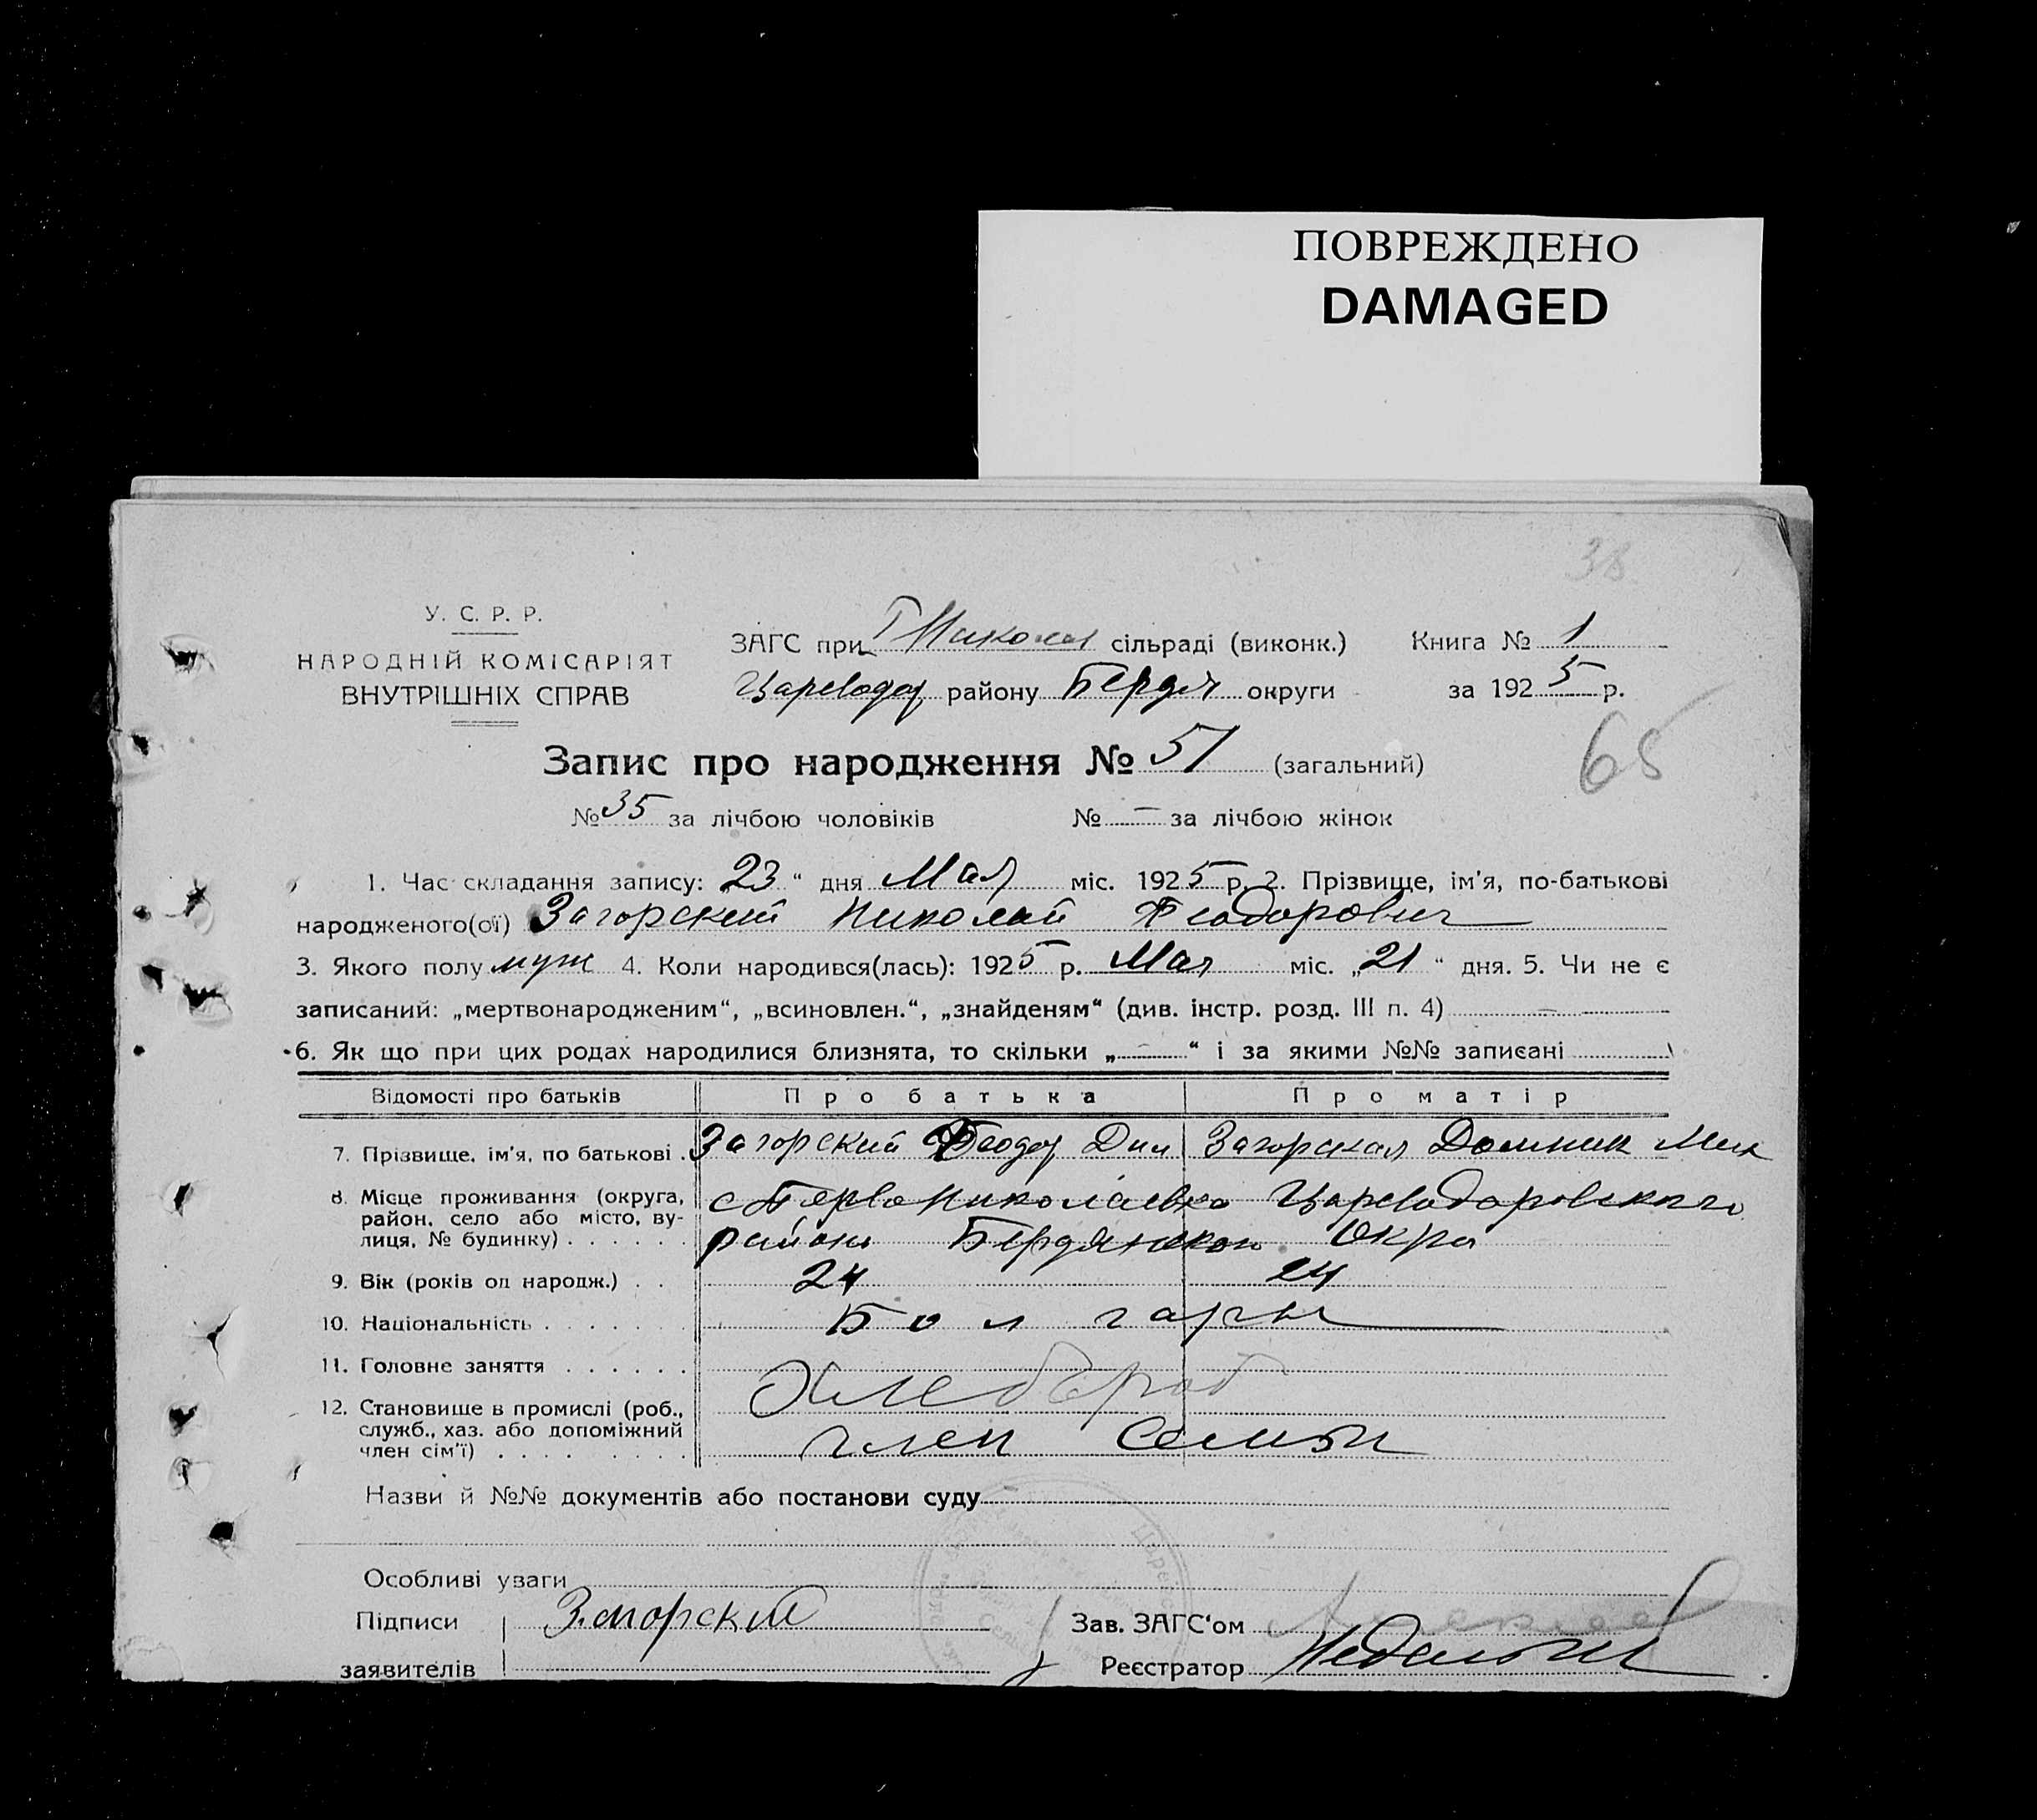 ПОВРЕЖДЕНО
DAMAGED
38
У. С. Р. Р.
НАРОДНІЙ КОМІСАРІЯТ
ВНУТРІШНІХ СПРАВ
ЗАГС при Николаев сільраді (виконк.) Книга № 1
Цареводар району Бердян округи за 1925 р.
Запис про народження № 51 (загальний)
65
№ 35 за лічбою чоловіків № — за лічбою жінок
1. Час складання запису: 23 “ дня Мая міс. 1925 р. 2. Прізвище, ім'я, по-батькові
народженого(ої) Загорский Николай Феодорович
3. Якого полу муж 4. Коли народився(лась): 1925 р. Мая міс. „21“ дня. 5. Чи не є
записаний: „мертвонародженим“, „всиновлен.“, „знайденям“ (див. інстр. розд. III п. 4) —
6. Як що при цих родах народилися близнята, то скільки „—“ і за якими №№ записані
Відомості про батьків Про батька Про матір
7. Прізвище, ім'я, по батькові . Загорский Феодор Дим Загорская Домник Мих
8. Місце проживання (округа, район, село або місто, вулиця, № будинку) . . . . . . с Первониколаевка Цареводаровского
района Бердянской Окра
9. Вік (років од народж.) . . 24 24
10. Національність . . . . . . . Болгары
11. Головне заняття . . . . . . Хлебороб
12. Становище в промислі (роб., служб., хаз. або допоміжний член сім'ї) . . . . . . . . член семьи
Назви й №№ документів або постанови суду
Особливі уваги
Підписи Загорский Зав. ЗАГС‘ом
заявителів Реєстратор